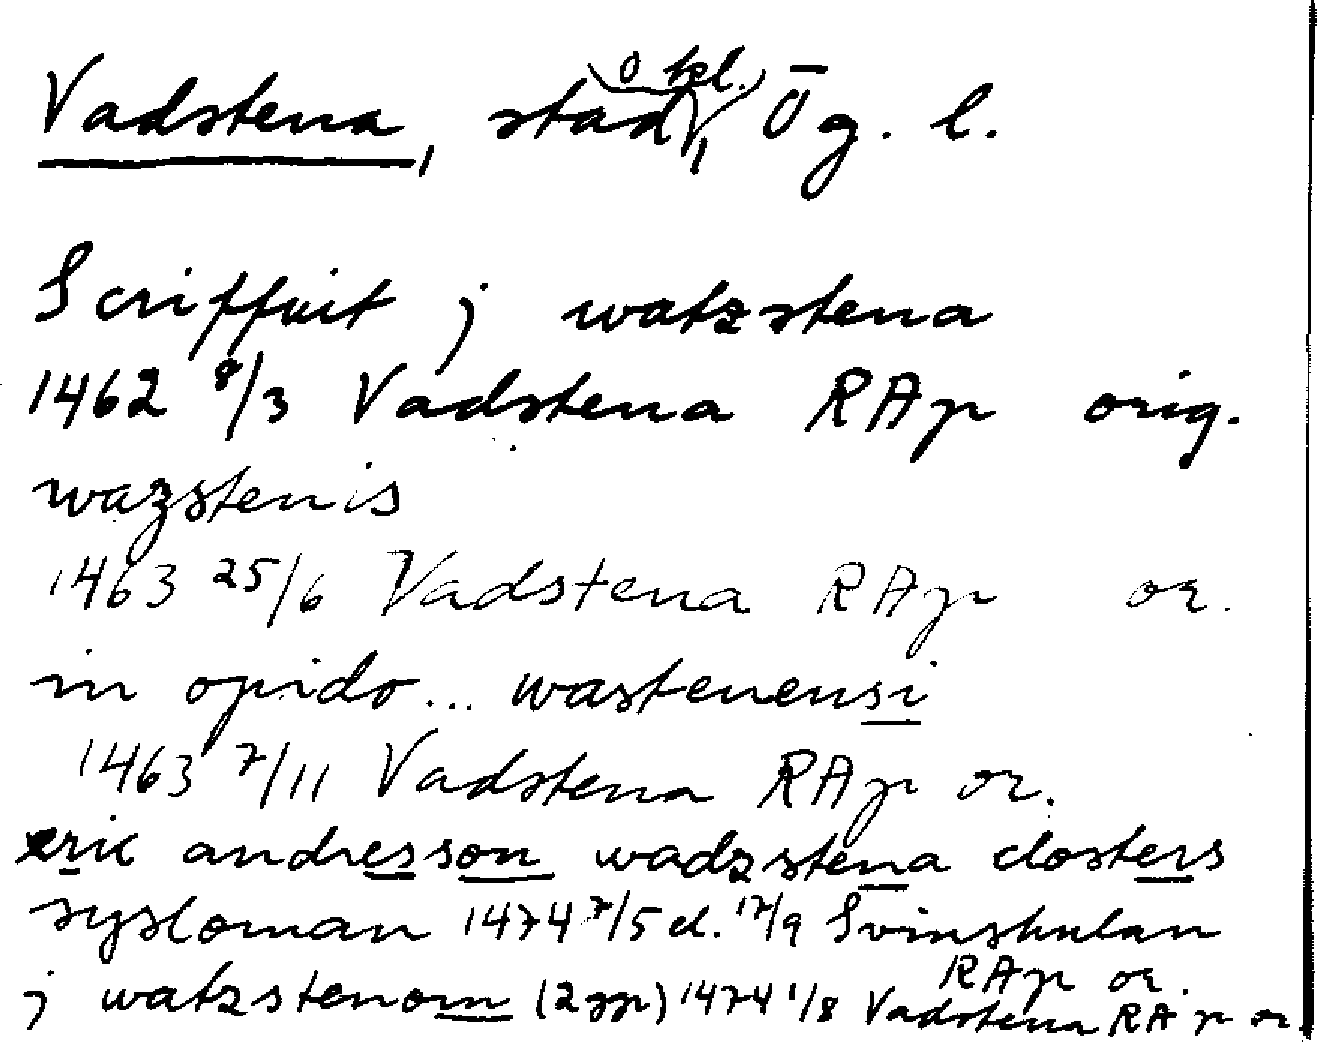 Vadstena, stad o kl., Ög. l.
Scriffuit j watzstena
1462 8/3 Vadstena RAp orig.
wazstenis
1463 25/6 Vadstena RAp or.
in opido... wastenensi
1463 7/11 Vadstena RAp or.
eric andresson wadzstena closters
sysloman 1474 7/5 el. 17/9 Svinskulan
RAp or.
j watzstenom (2 ggr) 1474 1/8 Vadstena RAp or